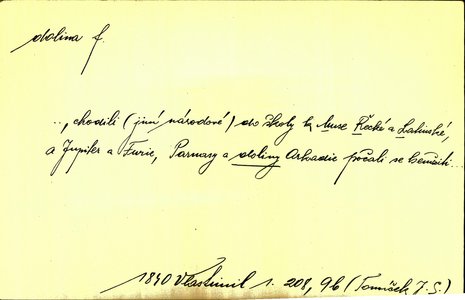 dolina f.
..., chodili (jiní národové) do školy k Muze Řecké a Latinské,
a Jupiter a Furie, Parnasy a doliny Arkadie počali se
1840 Vlastimil 1. 208, 96 (Tomíček J. S.)